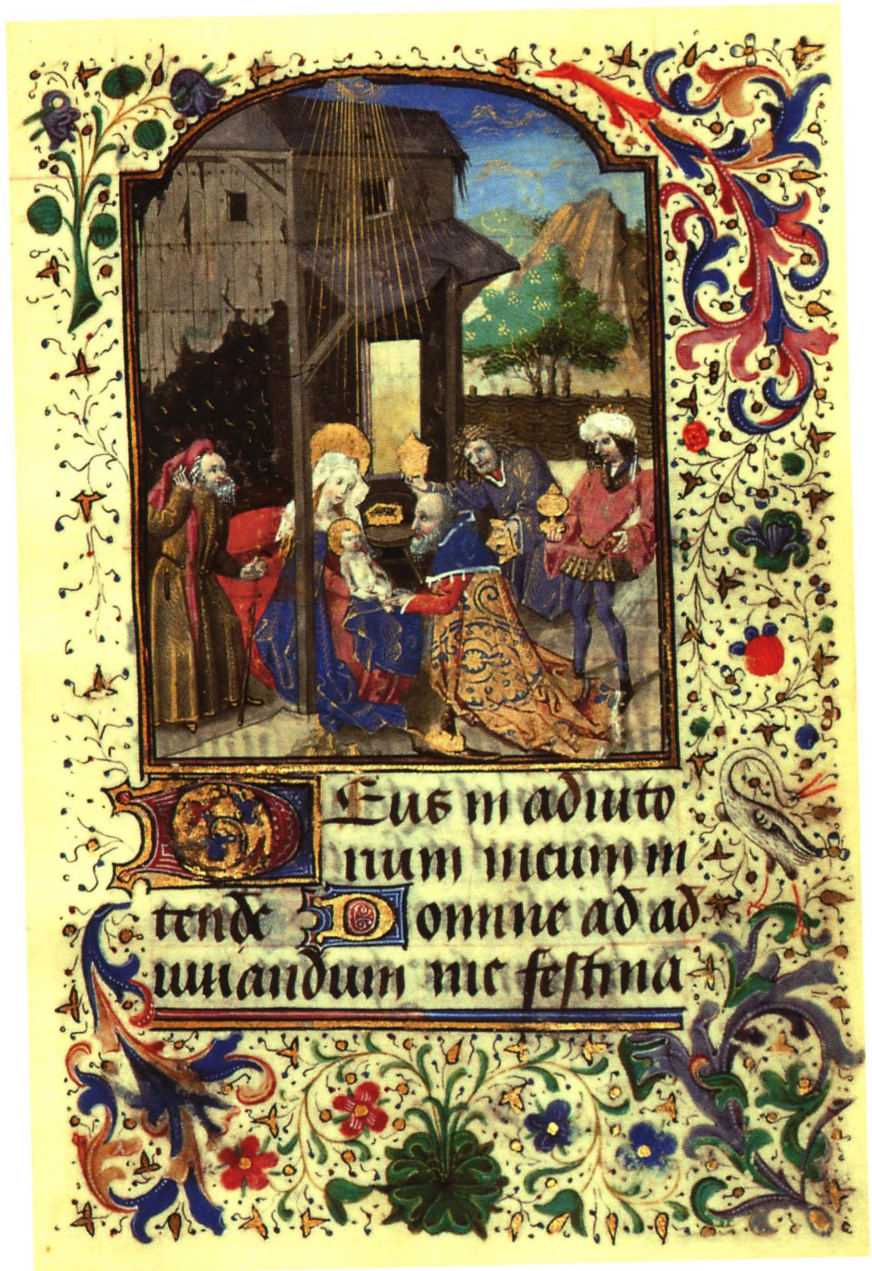 Deus in adiuto
rium meum in
tende Domine ad ad
iuuandum me festina